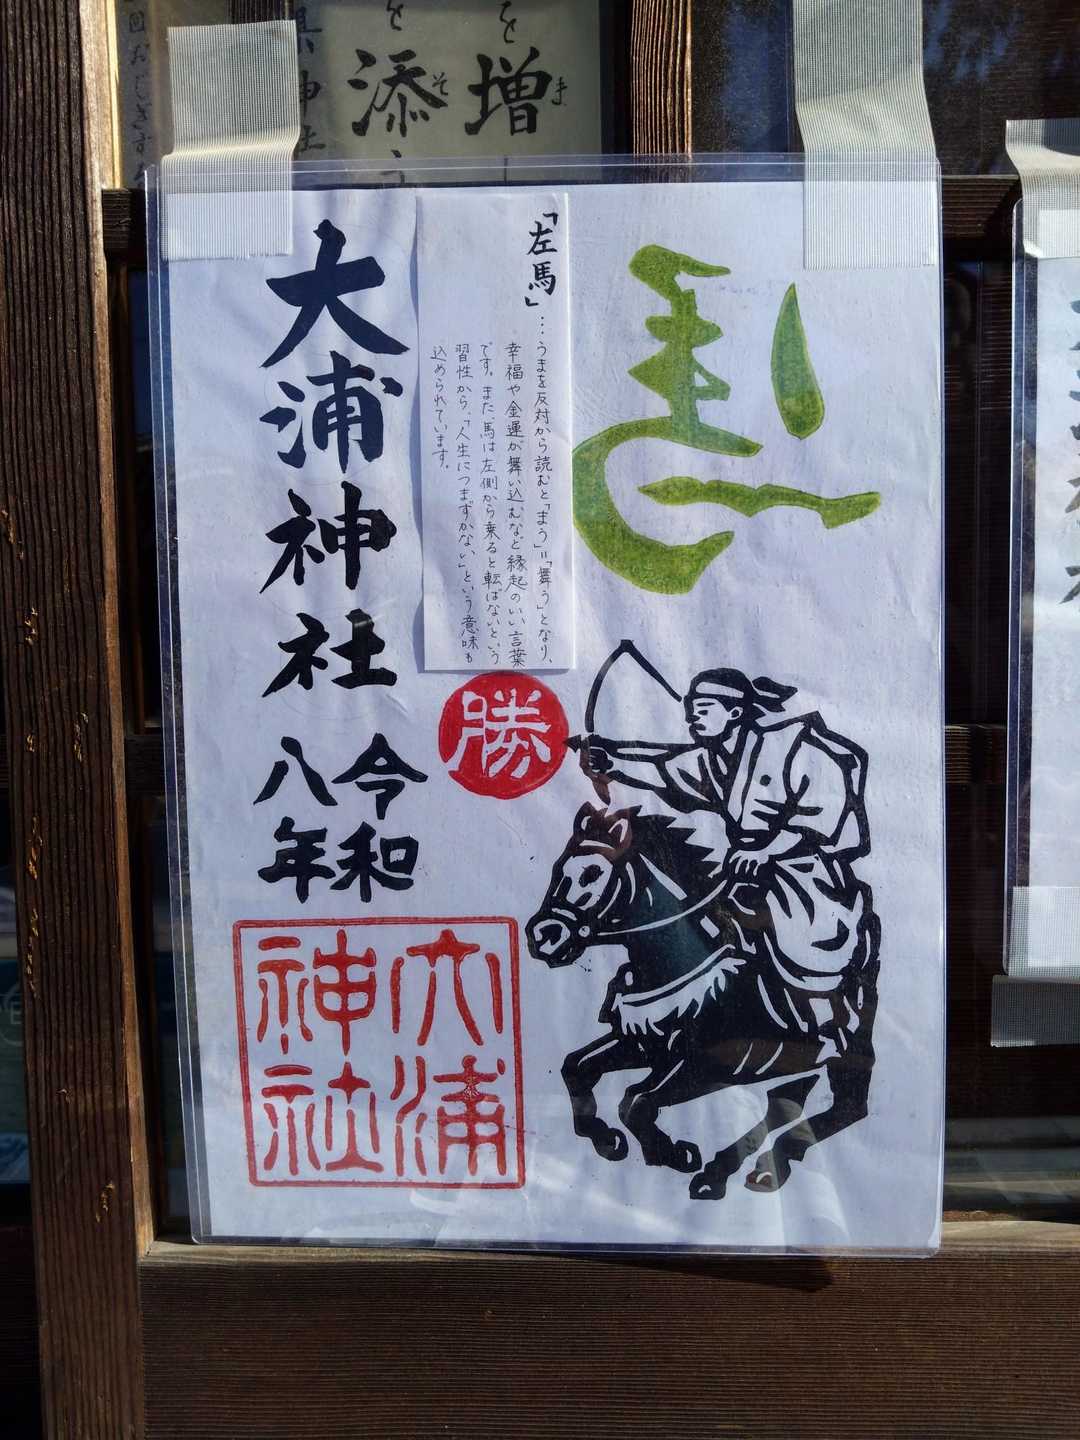 を増
を添う
馬
「左馬」…うまを反対から読むと「まう」＝「舞う」となり、
幸福や金運が舞い込むなど縁起のいい言葉
です。また、馬は左側から乗ると転ばないという
習性から、「人生につまずかない」という意味も
込められています。
勝
大浦神社
令和
八年
大浦
神社